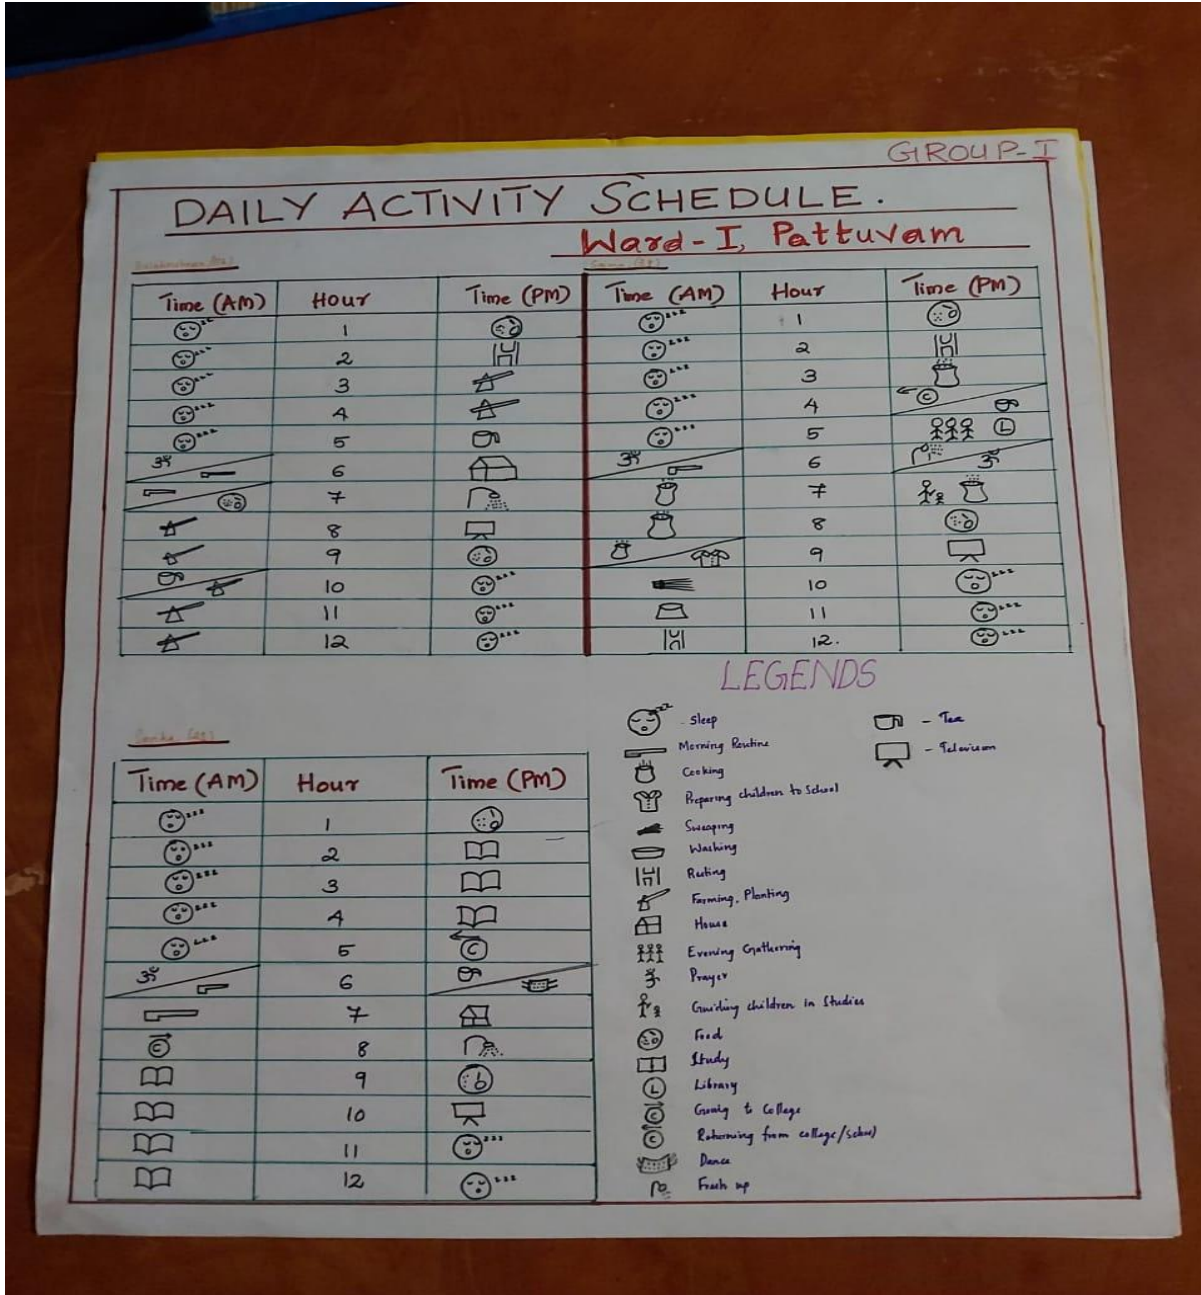 GROUP-I
DAILY ACTIVITY SCHEDULE.
Ward-I, Pattuvam
Time (AM) Hour Time (PM)
1
2
3
4
5
ॐ 6
7
8
9
10
11
12
Time (AM) Hour Time (PM)
1
2
3
C 4
5 L
ॐ 6 ॐ
7
8
9
10
11
12.
Time (AM) Hour Time (PM)
1
2
3
4
5 C
ॐ 6
7
C 8
9
10
11
12
LEGENDS
- Sleep
Morning Routine
Cooking
Preparing children to School
Sweaping
Washing
Resting
Farming, Planting
House
Evening Gathering
ॐ Prayer
Guiding children in Studies
Food
Study
L Library
C Going to College
C Returning from college/school
Dance
Fresh up
- Tea
- Television